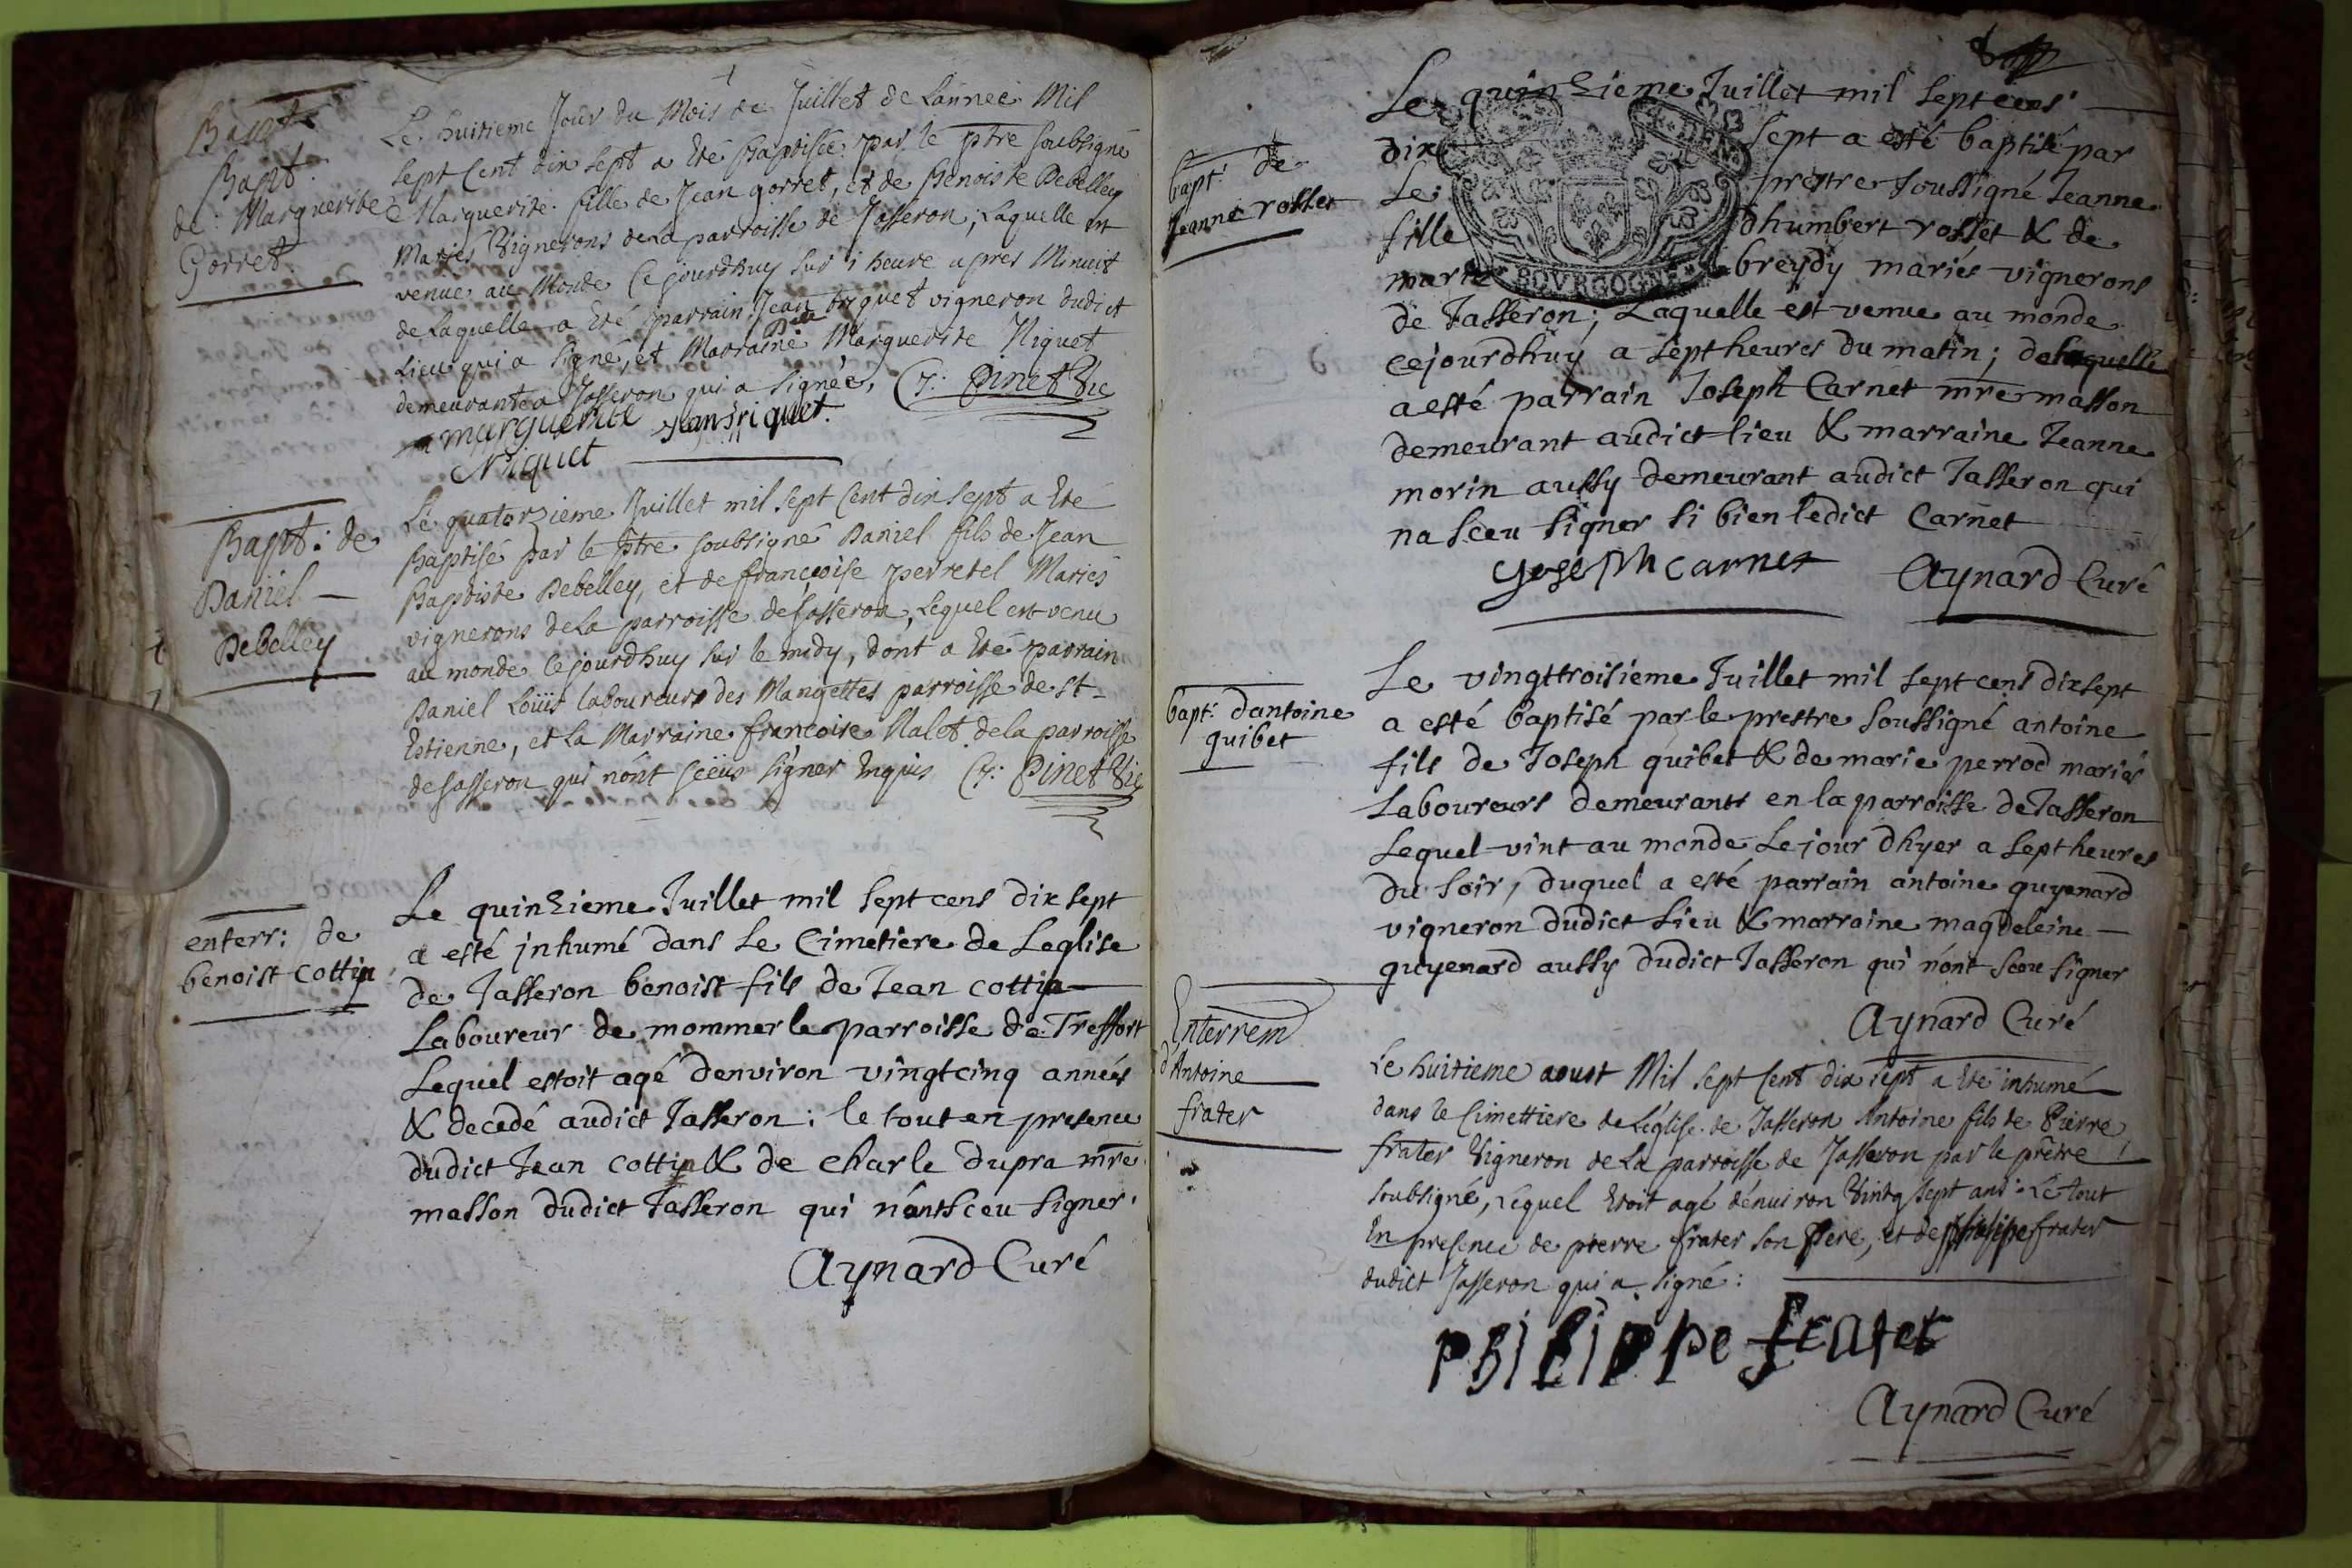 Bapt.
Bapt.
de Marguerite
Gorret.
Le huitieme Jour du Mois de Juillet de Lannee Mil
sept Cent dix sept a Eté Baptisée par le ptre soubsigné
Marguerite fille de Jean gorret, et de Benoiste Debelley
Mariés Vignerons de La parroisse de Jasseron, Laquelle est
venue au Monde Cejourdhuy sur 1 heure apres Minuit
de Laquelle a Eté parrain Jean triquet vigneron dudict
Lieu qui a signé, et Marraine Marguerite Niquet
demeurante a Jasseron qui a signée. C. J: Pinet Vic
marguerite Jean Triquet.
Niquet
Bapt: de
Daniel –
Debelley
Le quatorzieme Juillet mil sept Cent dix sept a Eté
Baptisé par le ptre soubsigné Daniel fils de Jean
Baptiste Debelley, et de françoise perretel Mariés
vignerons de La parroisse de Jasseron, Lequel est venu
au monde Cejourdhuy sur le midy, dont a Eté parrain
Daniel Loüis laboureur des Mangettes parroisse de st-
Estienne, et La Marraine francoise Nalet de la parroisse
de Jasseron qui nônt sceus signer Enquis C. J: Pinet Vic
enterr: de
benoist cottin
Le quinzieme Juillet mil sept cens dix sept
a esté inhumé dans le Cimetiere de Leglise
de Jasseron benoist fils de Jean cottin
Laboureur de mommerle parroisse de Treffort
Lequel estoit agé denviron vingtcinq années
& decedé audict Jasseron : le tout en presence
dudict Jean cottin & de charle dupra mre
masson dudict Jasseron qui n'ont sceu signer.
Aynard Curé
bapt: de
Jeanne rosset
Le quinzieme Juillet mil sept cens
dix sept a esté baptisé par
Le prestre soussigné Jeanne
fille dhumbert rosset & de
marie breydy mariés vignerons
BOVRGOGNE
de Jasseron; Laquelle est venue au monde
cejourdhuy a sept heures du matin; de laquelle
a esté parrain Joseph Carnet mre masson
demeurant audict lieu & marraine Jeanne
morin aussy demeurant audict Jasseron qui
na sceu signer si bien ledict Carnet
Joseph carnet Aynard Curé
bapt: dantoine
guibet
Le vingttroisieme Juillet mil sept cens dix sept
a esté baptisé par le prestre soussigné antoine
fils de Joseph guibet & de marie perrod mariés
Laboureurs demeurants en la parroisse de Jasseron
Lequel vint au monde Le jour dhyer a sept heures
du soir, duquel a esté parrain antoine guyenard
vigneron dudict Lieu & marraine magdeleine –
guyenard aussy dudict Jasseron qui n'ont sceu signer
Aynard Curé
Enterrem
d'Antoine
frater
Le huitieme aoust Mil sept Cent dix sept a Eté inhumé
dans le Cimettiere de Léglise de Jasseron Antoine fils de Pierre
frater Vigneron de La parroisse de Jasseron par le prêtre
soubsigné, Lequel Etoit agé dénuiron Vintg sept ans. Le tout
En presence de pierre frater son Pere, et de philippe frater
dudict Jasseron qui a signé :
philippe frater
Aynard Curé